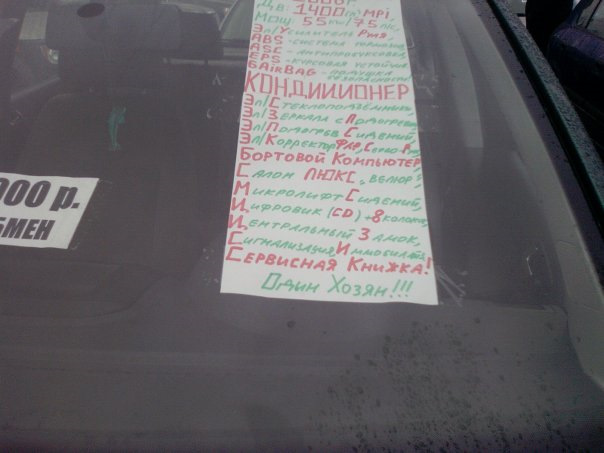 Дв: 1400 m³ MPi
Мощ 55 kw/75 л/с,
Эл/Усилитель Руля,
ABS - система тормозн,
ASC - антипробуксовк,
EPS - курсовая устойчив
6 AirBAG - подушка безопасности
КОНДИЦИОНЕР
Эл/Стеклоподъёмники
Эл/Зеркала с Подогревом
Эл/Подогрев Сидений,
Эл/Корректор Фар,
Бортовой Компьютер,
Салон ЛЮКС, велюр,
Микролифт Сидений,
Цифровик (CD) + 8 колонок,
Центральный Замок,
Сигнализация Иммобилайз,
Сервисная Книжка!
Один Хозян!!!
000 р.
БМЕН